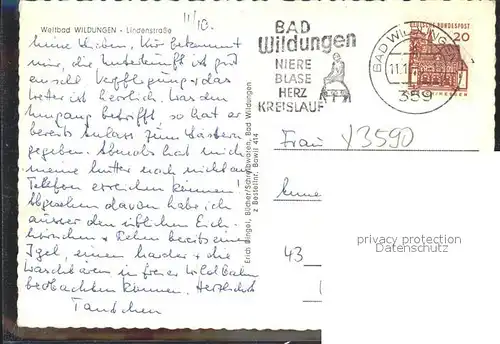 11/10.
Weltbad WILDUNGEN - Lindenstraße
Meine Lieben, Kur bekommt
mir, die Unterkunft ist gut
einschl. Verpflegung + das
Wetter ist herrlich. Was den
Umgang betrifft, so hat er
bereits Anlass zum Lästern
gegeben. Abends hat mich
meine Mutter noch nicht am
Telefon erreichen können!
Abgesehen davon habe ich
ausser den üblichen Eich-
hörnchen + Rehen bereits einen
Igel, einen Marder + die
Waschbären in freier Wildbahn
beobachten können. Herzlichst
Tantchen
Erich Bingel, Bücher/Schreibwaren, Bad Wildungen
z Bestellnr. Bowil 414
BAD
Wildungen
NIERE
BLASE
HERZ
KREISLAUF
BAD WILDUNGEN
11.1
359
DEUTSCHE BUNDESPOST
20
Frau
Y3590
43
privacy protection
Datenschutz